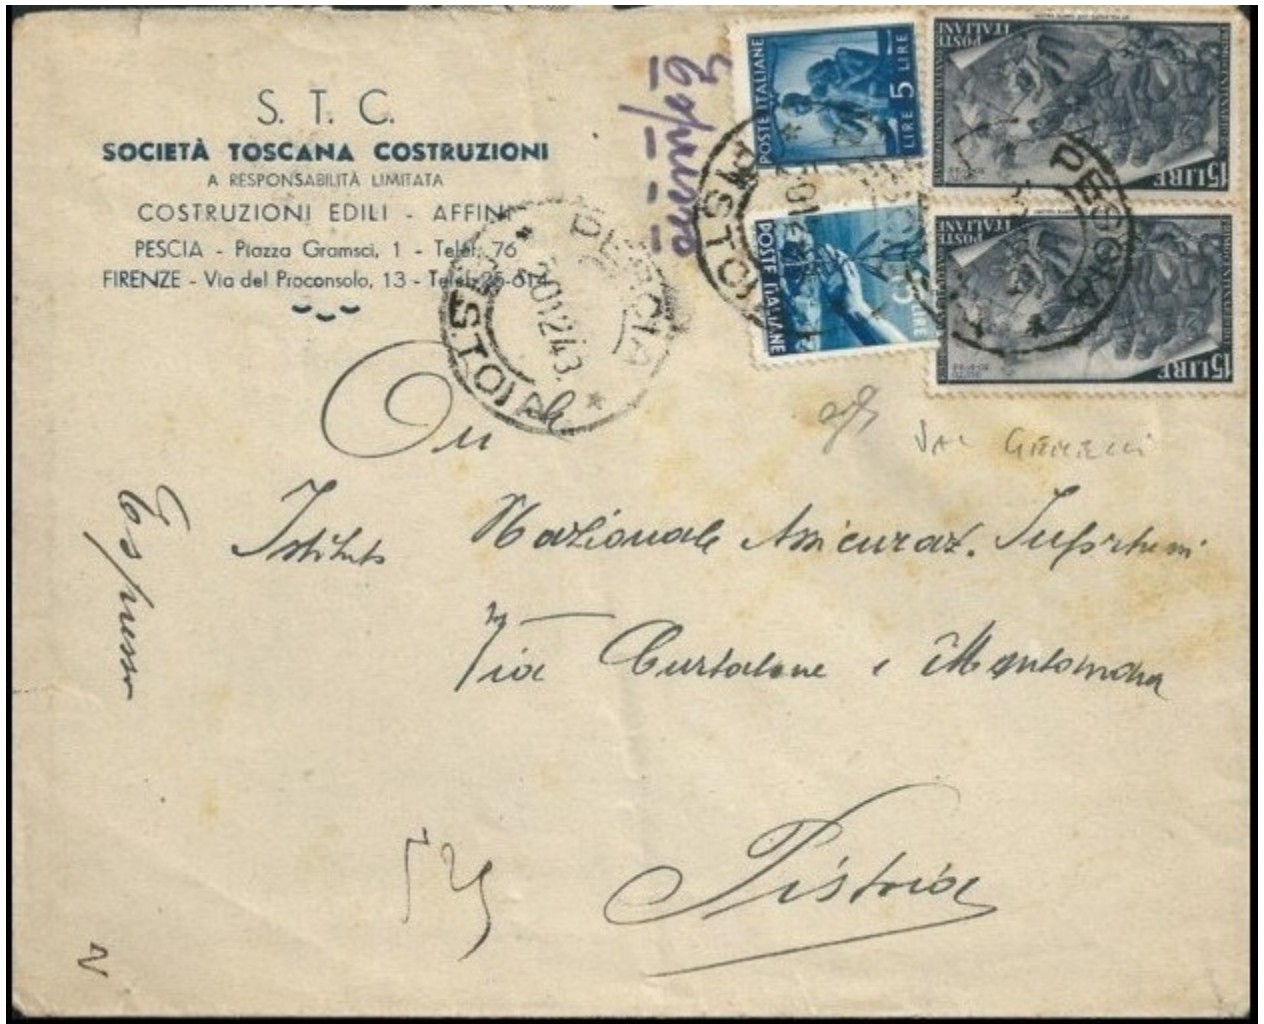 S. T. C.
SOCIETÀ TOSCANA COSTRUZIONI
A RESPONSABILITÀ LIMITATA
COSTRUZIONI EDILI - AFFINI
PESCIA - Piazza Gramsci, 1 - Telef. 76
FIRENZE - Via del Proconsolo, 13 - Telef. 25-614
POSTE ITALIANE
LIRE 5 LIRE
POSTE ITALIANE
15 LIRE
POSTE ITALIANE
5 LIRE
POSTE ITALIANE
15 LIRE
PESCIA
PISTOIA
PESCIA
PISTOIA
On
Istituto Nazionale Assicuraz. Infortuni
Via Curtatone e Montanara
Pistoia
Espresso